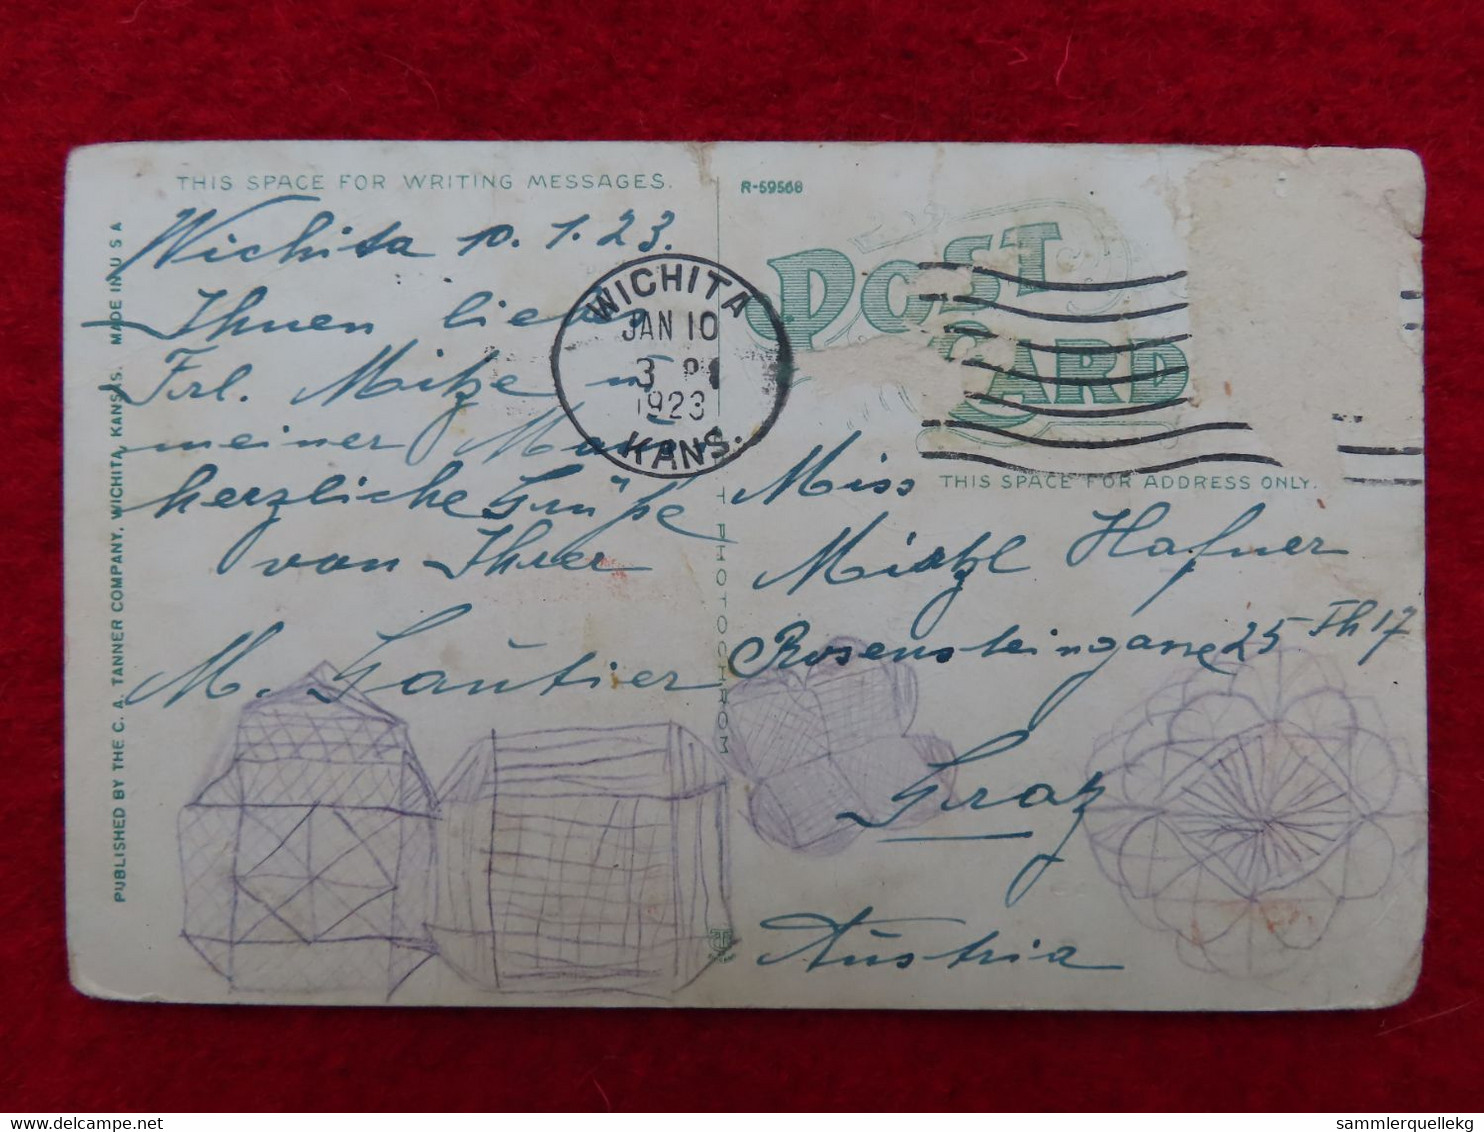 THIS SPACE FOR WRITING MESSAGES.
Wichita 10. 1. 23.
Ihnen liebe
Frl. Mitze
meiner
herzliche Grüße
von Ihrer
M. Gautier
PUBLISHED BY THE C. A. TANNER COMPANY, WICHITA, KANSAS. MADE IN U S A
WICHITA
JAN 10
3 PM
1923
KANS.
PHOTOCHROM
R-59568
POST CARD
THIS SPACE FOR ADDRESS ONLY.
Miss
Mietzl Hafner
Rosensteingasse 25 Th 17
Graz
Austria
sammlerquellekg